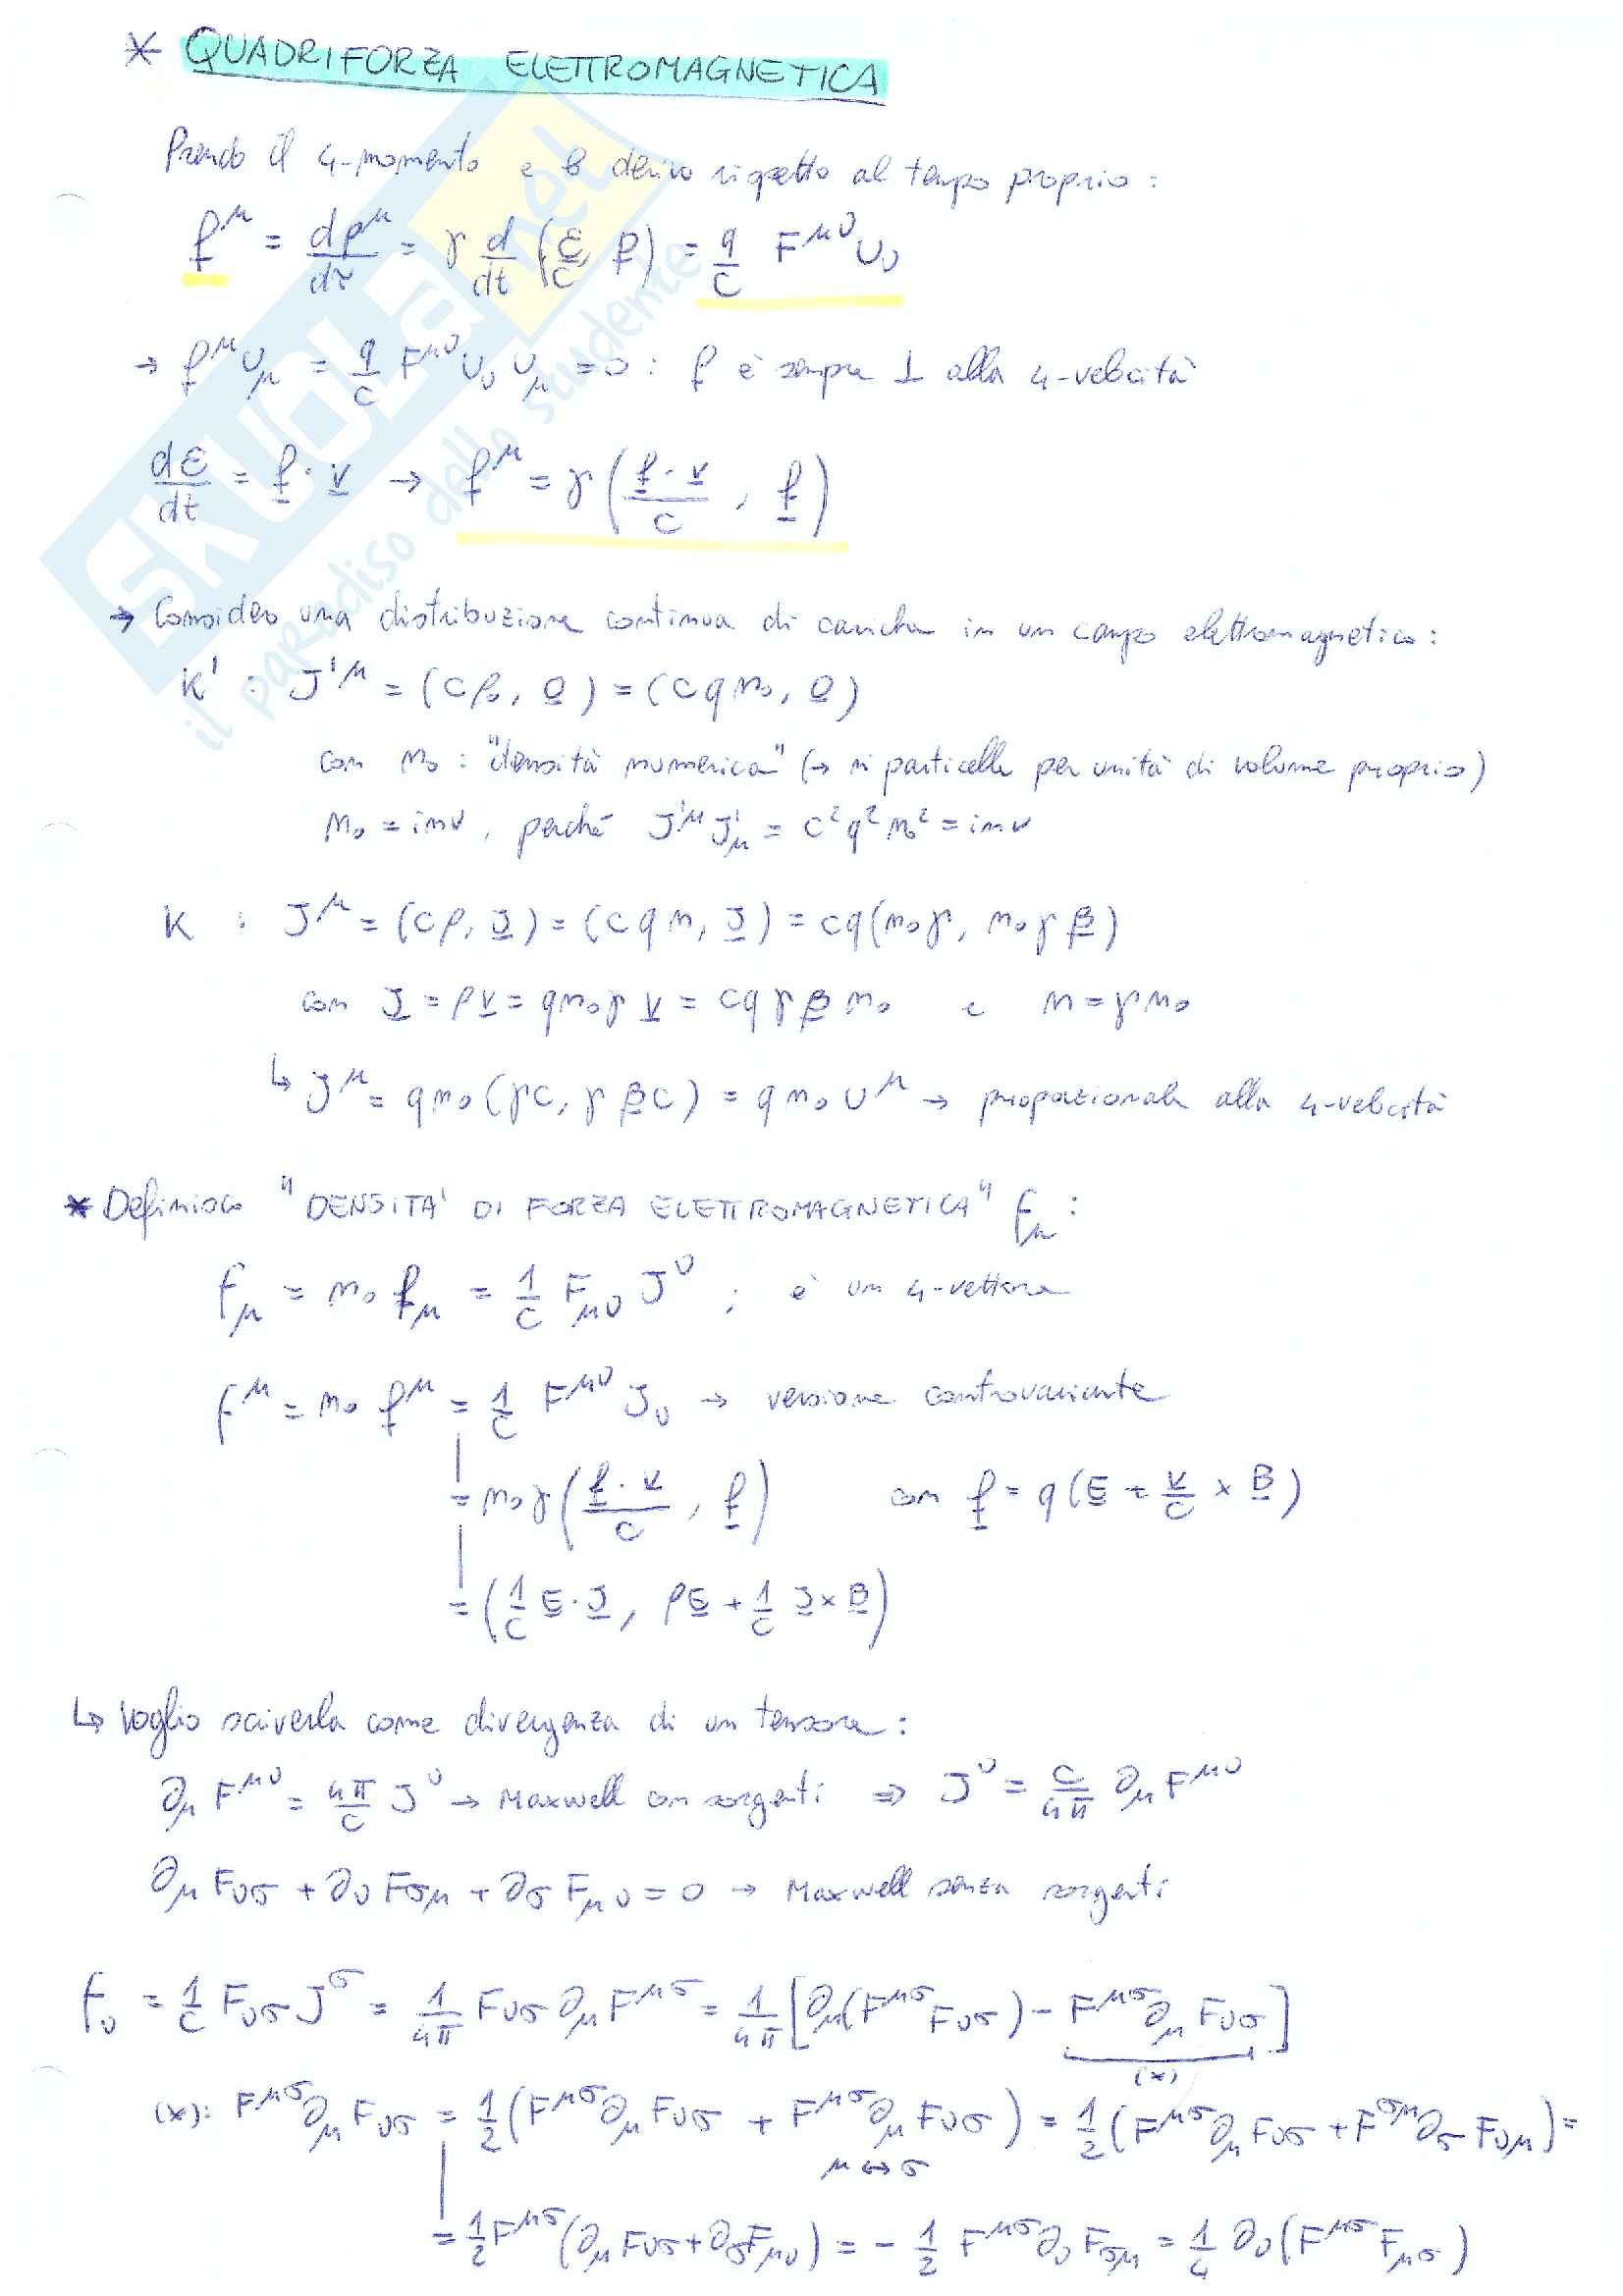 * QUADRIFORZA ELETTROMAGNETICA
Prendo il 4-momento e lo derivo rispetto al tempo proprio:
f^μ = dp^μ/dτ = γ d/dt (ε/c, p) = q/c F^{μν} U_ν
→ f^μ U_μ = q/c F^{μν} U_ν U_μ = 0 : f è sempre ⊥ alla 4-velocità
dε/dt = f · v → f^μ = γ (f · v / c , f)
→ Considero una distribuzione continua di cariche in un campo elettromagnetico:
K' : J'^μ = (cρ₀, 0) = (c q n₀, 0)
con n₀ : "densità numerica" (→ n particelle per unità di volume proprio)
n₀ = inv , perché J'^μ J'_μ = c² q² n₀² = inv
K : J^μ = (cρ, J) = (c q n, J) = cq(n₀γ, n₀γ β)
con J = ρv = q n₀ γ v = c q γ β n₀ e n = γ n₀
↳ J^μ = q n₀ (γc, γ β c) = q n₀ U^μ → proporzionale alla 4-velocità
* Definisco "DENSITA' DI FORZA ELETTROMAGNETICA" f_μ :
f_μ = n₀ f_μ = 1/c F_{μν} J^ν ; è un 4-vettore
f^μ = n₀ f^μ = 1/c F^{μν} J_ν → versione controvariante
= n₀γ (f · v / c , f) con f = q (E + v/c × B)
= (1/c E · J , ρE + 1/c J × B)
↳ Voglio scriverla come divergenza di un tensore:
∂_μ F^{μν} = 4π/c J^ν → Maxwell con sorgenti ⇒ J^ν = c/4π ∂_μ F^{μν}
∂_μ F_{νσ} + ∂_ν F_{σμ} + ∂_σ F_{μν} = 0 → Maxwell senza sorgenti
f_ν = 1/c F_{νσ} J^σ = 1/4π F_{νσ} ∂_μ F^{μσ} = 1/4π [∂_μ (F^{μσ} F_{νσ}) - F^{μσ} ∂_μ F_{νσ}]
(x)
(x): F^{μσ} ∂_μ F_{νσ} = 1/2 (F^{μσ} ∂_μ F_{νσ} + F^{μσ} ∂_μ F_{νσ}) = 1/2 (F^{μσ} ∂_μ F_{νσ} + F^{σμ} ∂_σ F_{νμ}) =
μ ↔ σ
= 1/2 F^{μσ} (∂_μ F_{νσ} + ∂_σ F_{μν}) = - 1/2 F^{μσ} ∂_ν F_{σμ} = 1/4 ∂_ν (F^{μσ} F_{μσ})
SKUOLA.net
il paradiso dello studente